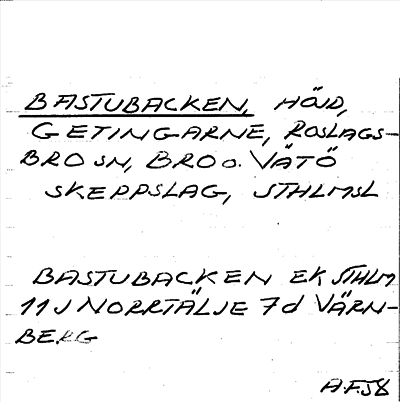 BASTUBACKEN, HÖJD,
GETINGARNE, ROSLAGS-
BRO SN, BRO o. VÄTÖ
SKEPPSLAG, STHLMSL
BASTUBACKEN EK STHLM
11J NORRTÄLJE 7d VÄRN-
BERG
A.F.58